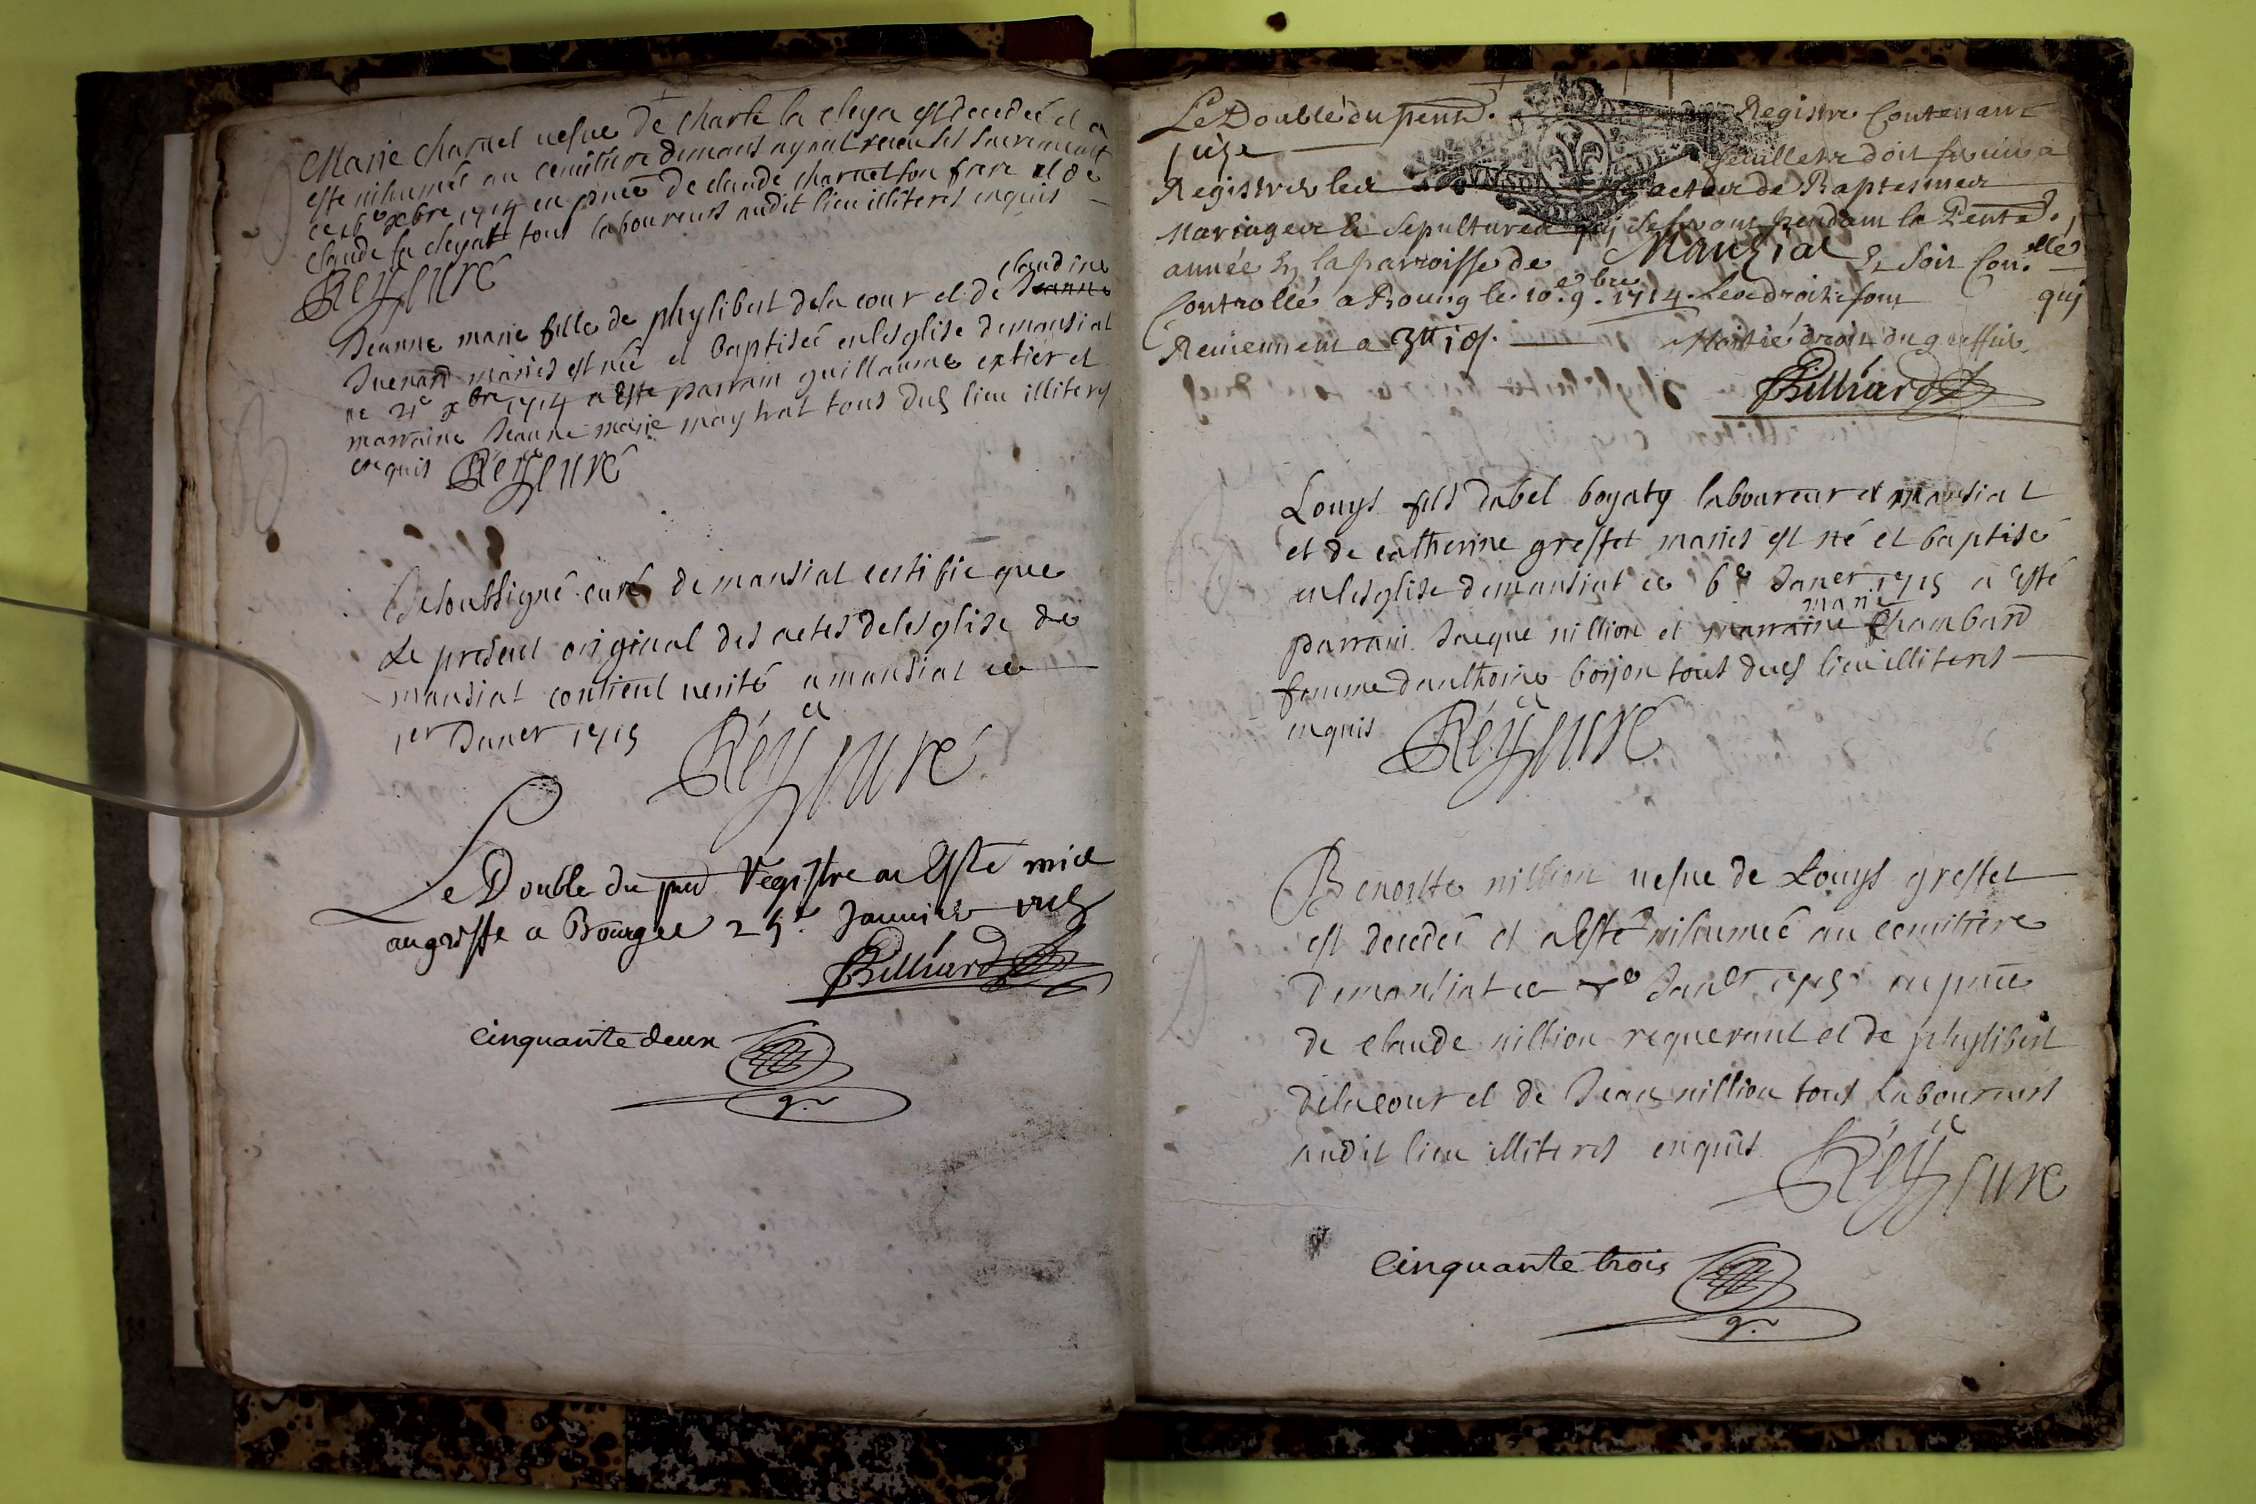 Marie charnel uefue de charle la cleya est decedeé et a
esté inhumeé au cemittiere demans ayant receu ses sacrements
ce 16e xbre 1714 en pnce de claude charnel son frere et de
claude la cleyat tous laboureurs audit lieu illiteres enquis
Réÿ curé
claudine
Jeanne marie fille de phylibert dela cour et de Jeanne
mariés est neé et baptiseé en lesglise demansiat
ce 21e xbre 1714 a esté parrain guillaume extier et
marraine Jeanne marie may tous dud lieu illiteres
enquis Réÿ curé
Je soubsigné curé de mansiat certifie que
Le present original des actes delesglise de
mansiat contient uerité a mansiat ce
1er Janer 1715
Réÿ curé
Le Double du pnt Registre a Esté mis
au greffe a Bourg le 25e Januier
Billiard
cinquante deux
Le Double du pnt. Registre Contenant
seize feuillets doit seruir a
Registrer les actes de Baptesmes
Mariages & Sepultures qui se feront pendant la
année En la parroisse de Manziat Et soit
Controllé a Bourg le 10e 9bre 1714. Les droits sont quj
Reuiennent a 3tt Moitié droit du greffier
Billiard
Louys fils dabel boyaty laboureur a mansiat
et de catherine greffet mariés est né et baptisé
en lesglise demansiat ce 6e Janer 1715 a esté
marie
parrain Jacque nillion et marraine Chambard
femme danthoine borjon tous dud lieu illiteres
enquis Réÿ curé
Benoitte nillion uefue de Louys greffet
est decedeé et a Esté inhumeé au cemittiere
Demansiat ce Janer 1715 en pnce
de claude nillion requerant et de phylibert
delacour et de Jean nillion tous Laboureurs
audit lieu illiteres enquis
Réÿ curé
Cinquante trois